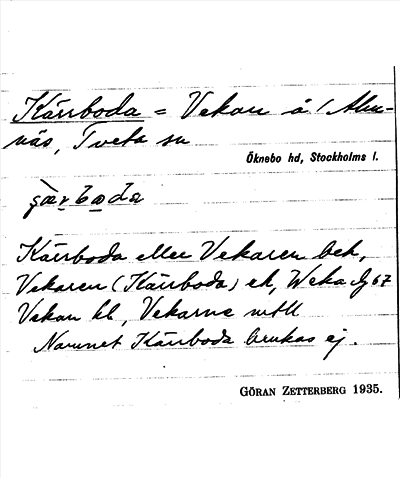 Kärrboda = Vekan å / Alm-
näs, Tveta sn
Öknebo hd, Stockholms l.
Kärrboda eller Vekaren bek,
Vekaren (Kärrboda) ek, Weka Jb 67
Vekan hl, Vekarne mtll
Namnet Kärrboda brukas ej.
GÖRAN ZETTERBERG 1935.